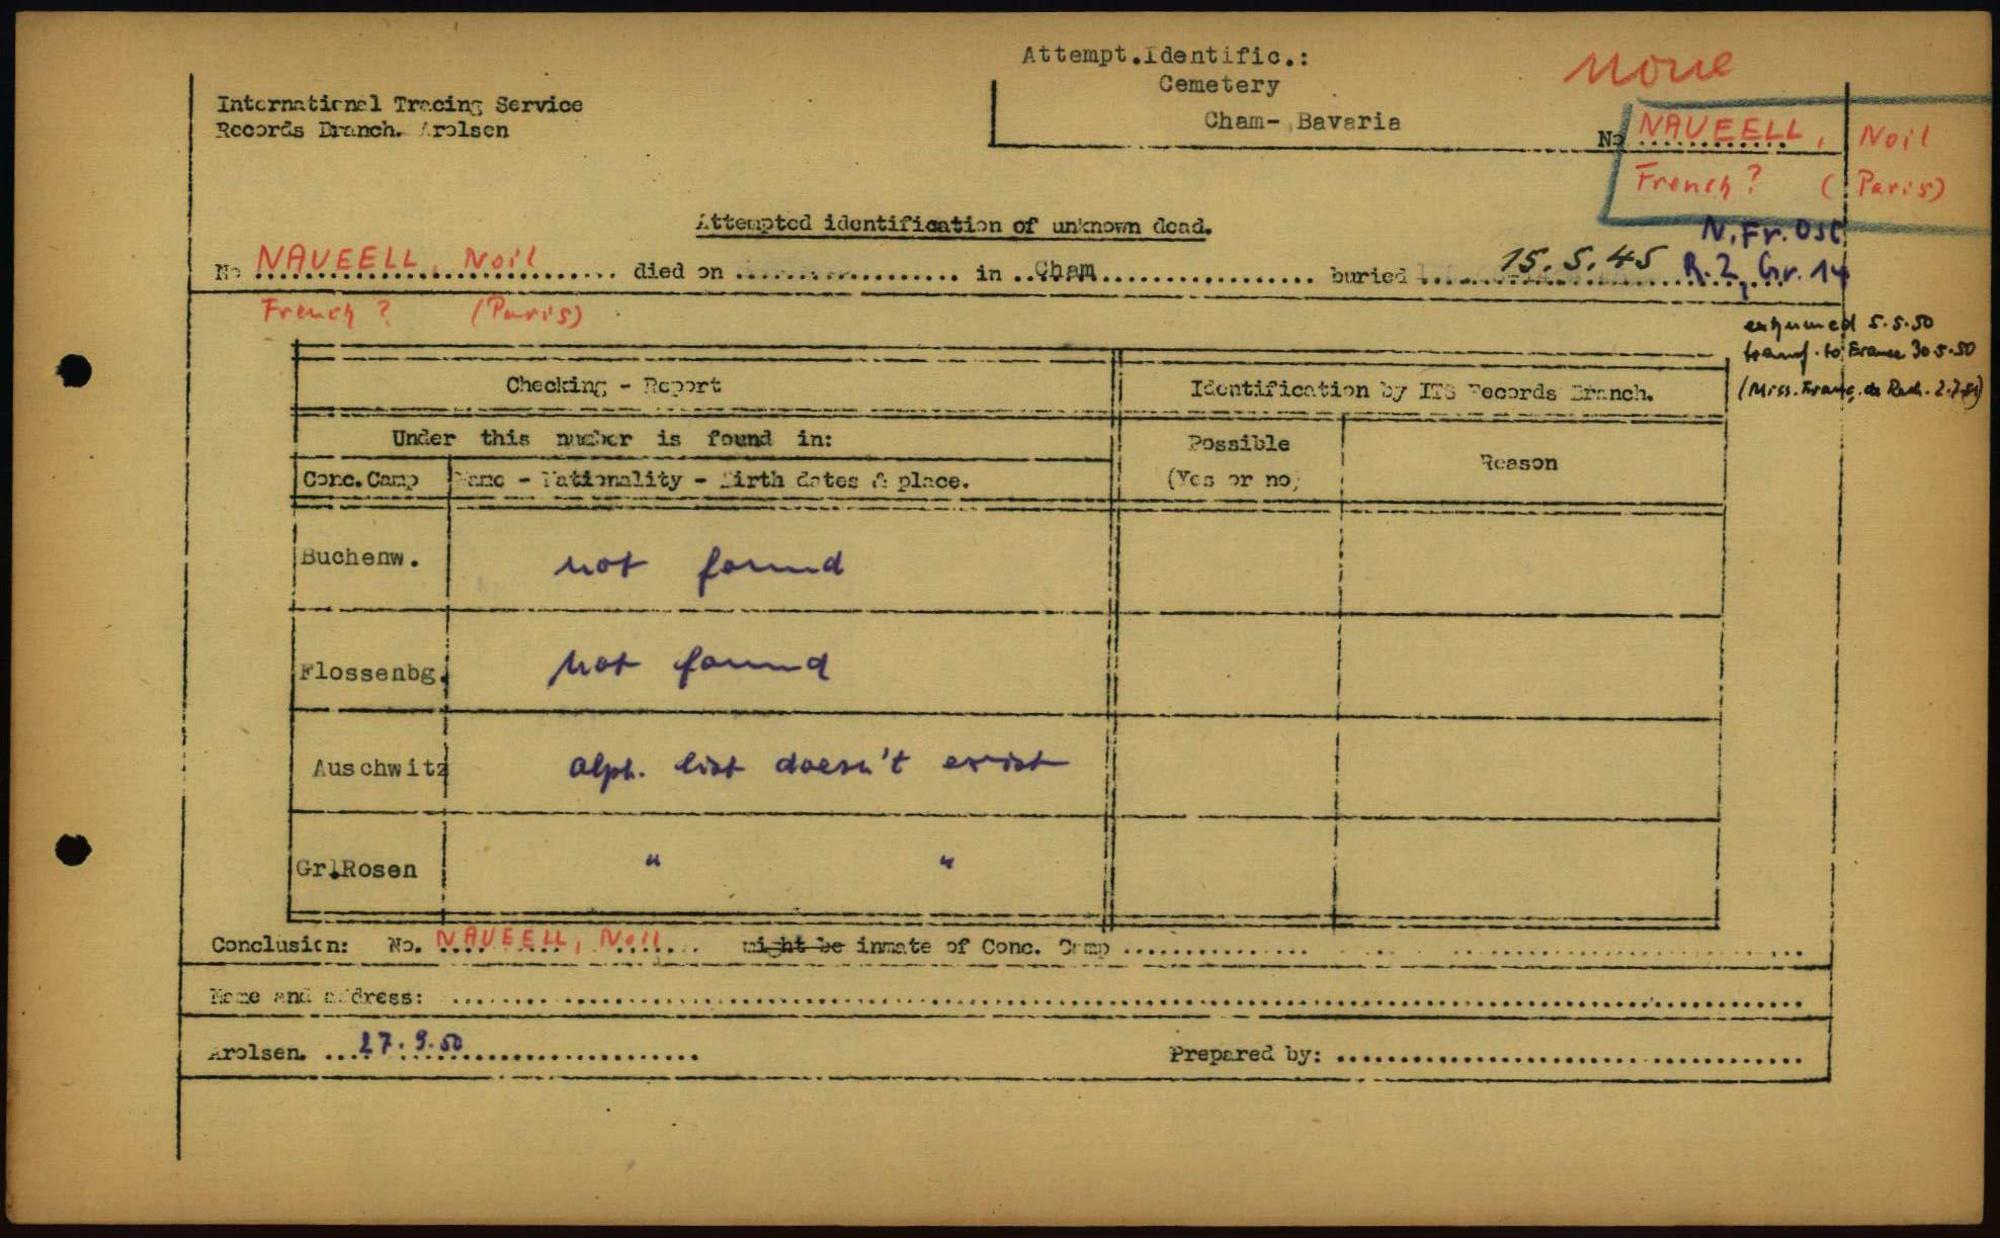 Attempt.Identific.:
Cemetery
Cham- Bavaria
none
International Tracing Service
Records Branch. Arolsen
No NAVEELL, Noil
French? (Paris)
Attempted identification of unknown dead.
N. Fr. Ost
R. 2, Gr. 14
No NAVEELL, Noil died on .................... in ..Cham.................. buried 15.5.45
French? (Paris)
exhumed 5.5.50
transf. to France 30.5.50
(Miss. Franç. de Rech.
Checking - Report
Identification by ITS Records Branch.
Under this number is found in:
Possible
(Yes or no)
Reason
Conc.Camp
Name - Nationality - Birth dates & place.
Buchenw. not found
Flossenbg. not found
Auschwitz alph. list doesn't exist
Gr.Rosen " "
Conclusion: No. NAVEELL, Noil might be inmate of Conc. Camp ....................
Name and address: ....................
Arolsen. 27.9.50
Prepared by: ....................